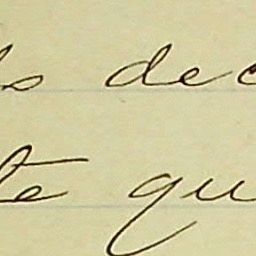 ls dec
te qu